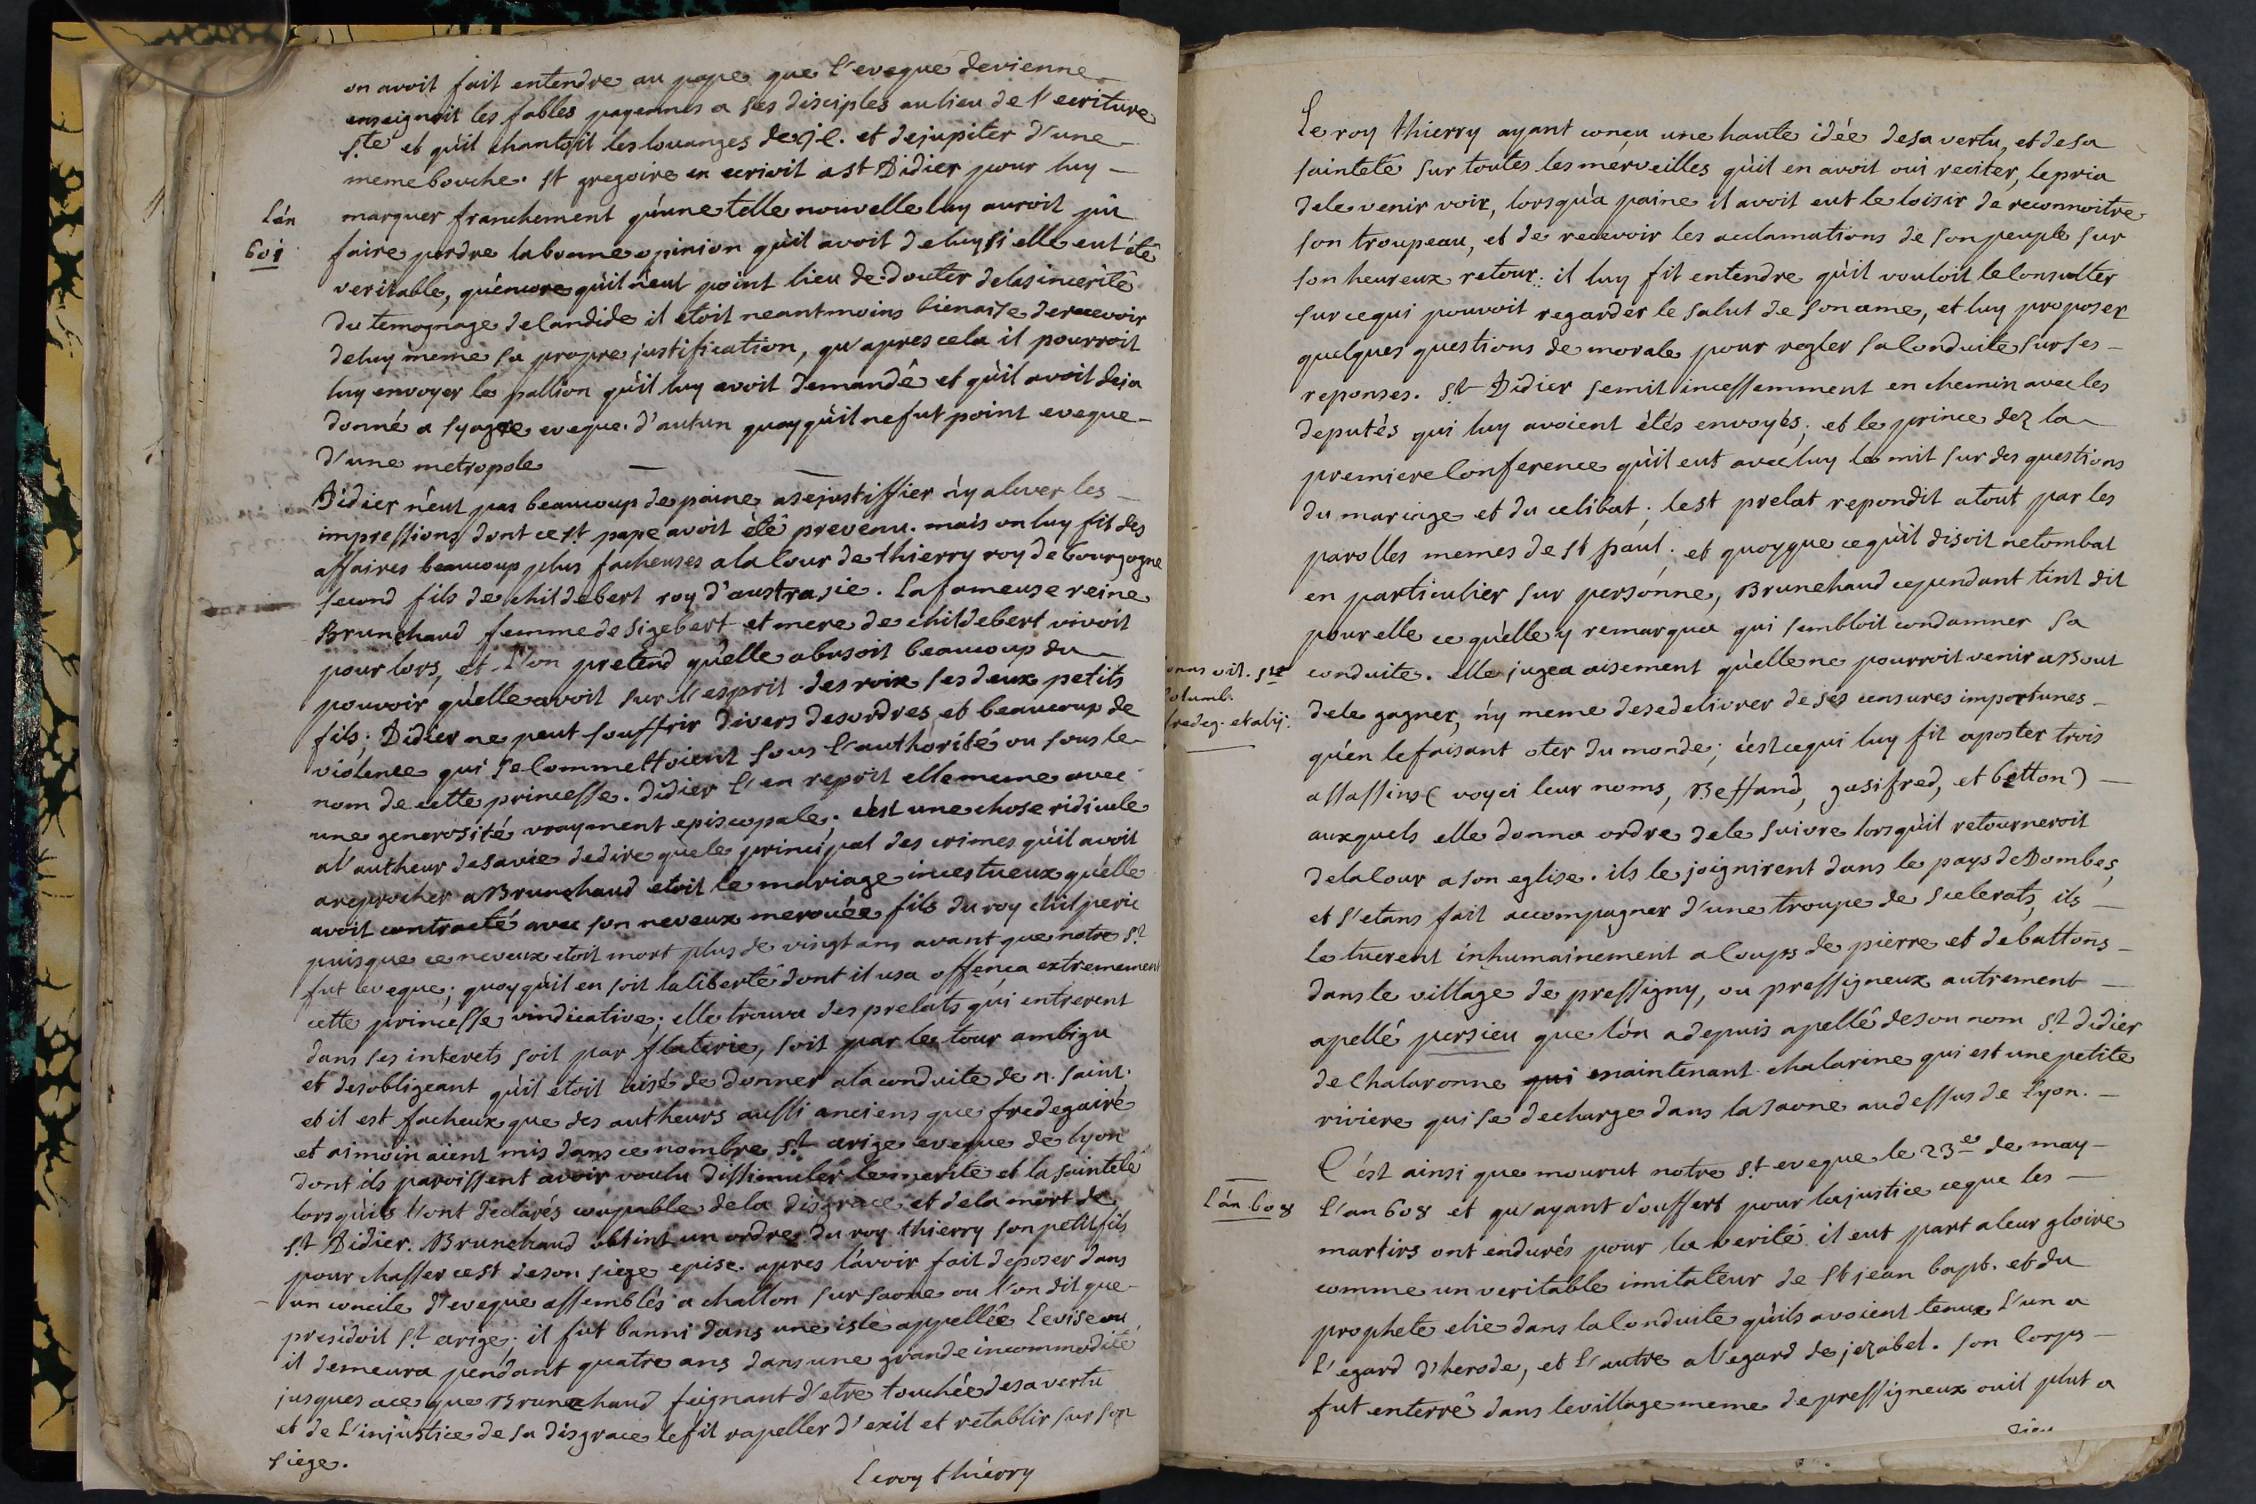 on avoit fait entendre au pape que l'eveque devienne
enseignoit les fables payennes a ses disciples au lieu de l'ecriture
s.te et qu'il chantoit les louanges de J.C. et de jupiter d'une
meme bouche. st gregoire en ecrivit a st Didier pour luy
l'án
601
marquer franchement qu'une telle nouvelle luy auroit pû
faire perdre la bonne opinion qu'il avoit de luy si elle eut été
veritable, qu'encore qu'il n'eut point lieu de douter de la sincerité
du temognage de Candide il etoit neantmoins bienaise de recevoir
de luy meme sa propre justification, qu'apres cela il pourroit
luy envoyer le pallion qu'il luy avoit demandé et qu'il avoit deja
donné a syagre eveque d'autun quoyqu'il ne fut point eveque
d'une metropole
Didier n'eut pas beaucoup de paine a se justiffier n'y a lever les
impressions dont ce st. pape avoit été prevenu. mais on luy fit des
affaires beaucoup plus facheuses a la Cour de thierry roy de bourgogne
second fils de childebert roy d'austrasie. La fameuse reine
Brunehaud femme de sigebert et mere de childebert vivoit
pour lors, et l'on pretend qu'elle abusoit beaucoup du
pouvoir qu'elle avoit sur l'esprit des roix ses deux petits
fils; Didier ne peut souffrir divers desordres et beaucoup de
violence qui se Commettoient sous l'authorité ou sous le
nom de cette princesse. Didier l'en reprit elle meme avec
une generosité vrayment episcopale; c'est une chose ridicule
a l'autheur de sa vie de dire que le principal des crimes qu'il avoit
a reprocher a Brunehaud etoit le mariage incestueux qu'elle
avoit contracté avec son neveux merouée fils du roy chilperic
puisque ce neveux etoit mort plus de vingt ans avant que notre st
fut eveque; quoyqu'il en soit la liberté dont il usa offença extremement
cette princesse vindicative; elle trouva des prelats qui entrerent
dans ses interets soit par flaterie, soit par le tour ambigu
et desobligeant qu'il etoit aisé de donner a la conduite de n. saint.
et il est facheux que des autheurs aussi anciens que fredegairé
et aimoin aient mis dans ce nombre st arige eveque de lyon
dont ils paroissent avoir voulu dissimuler le merite et la sainteté
lorsqu'ils l'ont declarés coupable de la disgrace et de la mort de
st Didier. Brunehaud obtint un ordre du roy thierry son petit fils
pour chasser ce st de son siege epise. apres l'avoir fait deposer dans
un concile d'eveque assemblés a challon sur saone ou l'on dit que
presidoit st arige; il fut banni dans une isle appellée Levise ou
il demeura pendant quatre ans dans une grande incommodité
jusques a ce que Brunehaud feignant d'etre touchée de sa vertu
et de l'injustice de sa disgrace le fit rapeller d'exil et retablir sur son
siege.
Le roy thierry
Le roy thierry ayant conçu une haute idée de sa vertu, et de sa
sainteté sur toutes les merveilles qu'il en avoit oui reciter, le pria
de le venir voir, lorsqu'à paine il avoit eut le loisir de reconnoitre
son troupeau, et de recevoir les acclamations de son peuple sur
son heureux retour: il luy fit entendre qu'il vouloit le Consulter
sur ce qui pouvoit regarder le salut de son ame, et luy proposer
quelques questions de morale pour regler sa Conduite sur ses
reponses. st Didier se mit incessemment en chemin avec les
deputés qui luy avoient étés envoyés; et le prince dez la
premiere Conference qu'il eut avec luy le mit sur des questions
du mariage et du celibat; le st prelat repondit a tout par les
parolles memes de st paul; et quoyque ce qu'il disoit ne tombat
en particulier sur persónne, Brunehaud cependant tint dit
pour elle ce qu'elle y remarqua qui sembloit condamner sa
conduite. elle jugea aisement qu'elle ne pourroit venir a Bout
vit. ste
Columb.
fredeg. et alij.
de le gagner, n'y meme de se delivrer de ses censures importunes
qu'en le faisant oter du monde; c'est ce qui luy fit aposter trois
assassins (voyci leur noms, Beffand, gasifred, et betton)
auxquels elle donna ordre de le suivre lorsqu'il retourneroit
de la Cour a son eglise. ils le joignirent dans le pays de Dombes,
et s'etans fait accompagner d'une troupe de scelerats, ils
le tuerent inhumainement a Coups de pierre et de battons
dans le village de pressigny, ou pressigneux autrement
apellé persieu que l'ón a depuis apellé de son nom st didier
de Chalaronne qui maintenant chalarine qui est une petite
riviere qui se decharge dans la saone au dessus de Lyon.
C'est ainsi que mourut notre st eveque le 23e de may
L'án 608
l'an 608 et qu'ayant souffert pour la justice ce que les
martirs ont endurés pour la verité il eut part a leur gloire
comme un veritable imitateur de st jean bapt. et du
prophete elie dans la Conduite qu'ils avoient tenue l'un a
l'egard d'herode, et l'autre a l'egard de jezabel. son Corps
fut enterré dans le village meme de pressigneux ou il plut a
dieu